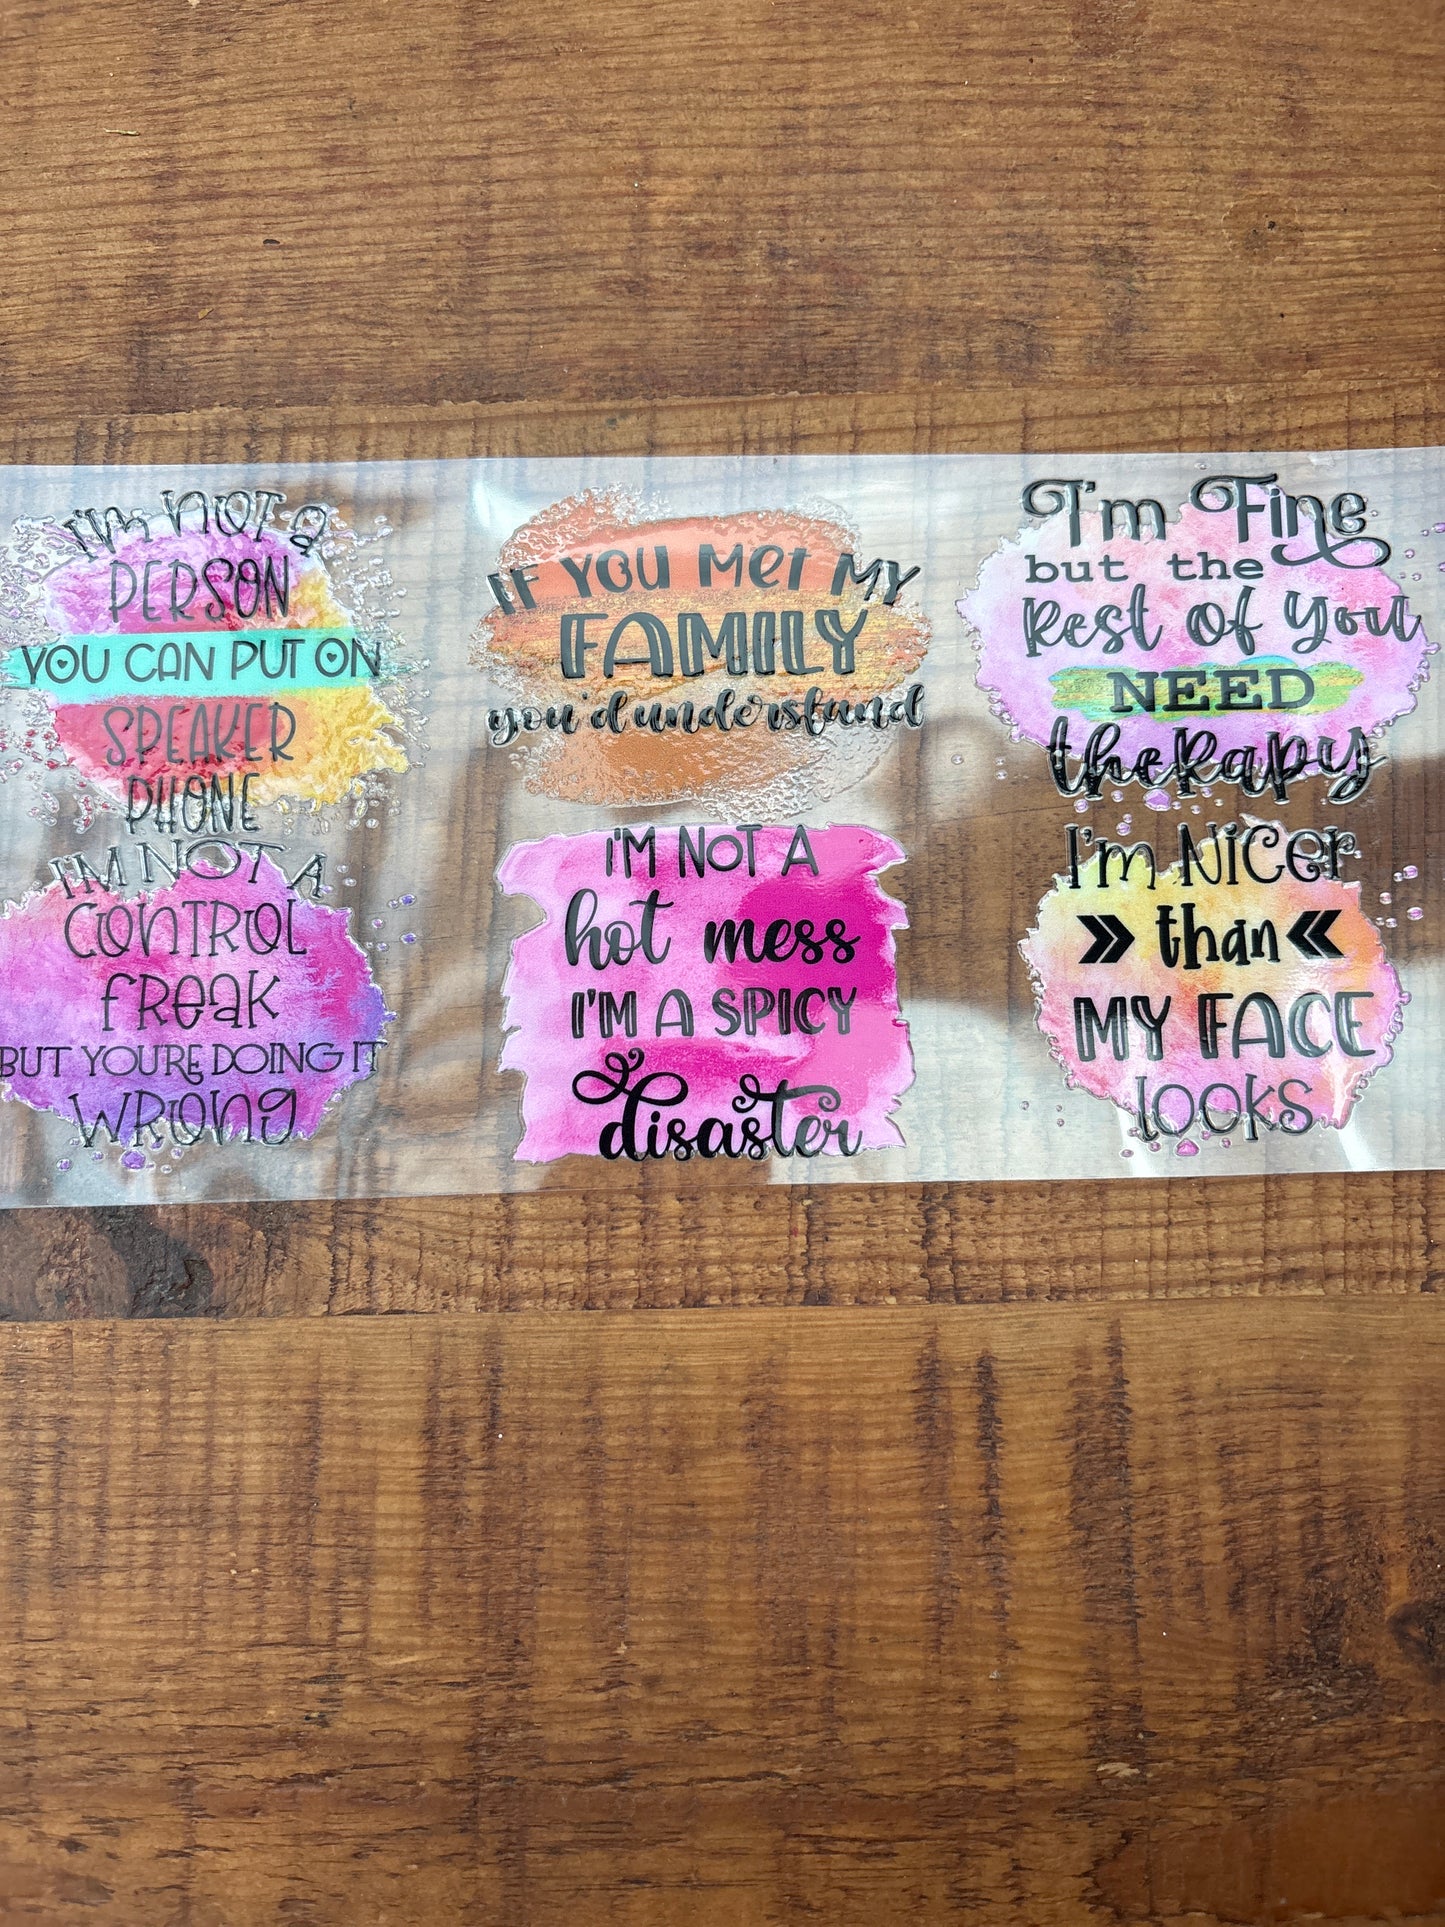 I'm NOT a
PERSON
YOU CAN PUT ON
SPEAKER
PHONE
IF YOU MET MY
FAMILY
you'd understand
I'm Fine
but the
Rest of you
NEED
theRapy
I'M NOT A
CONTROL
FREAK
BUT YOU'RE DOING IT
WRONG
I'M NOT A
hot mess
I'M A SPICY
disaster
I'm Nicer
than
MY FACE
looks